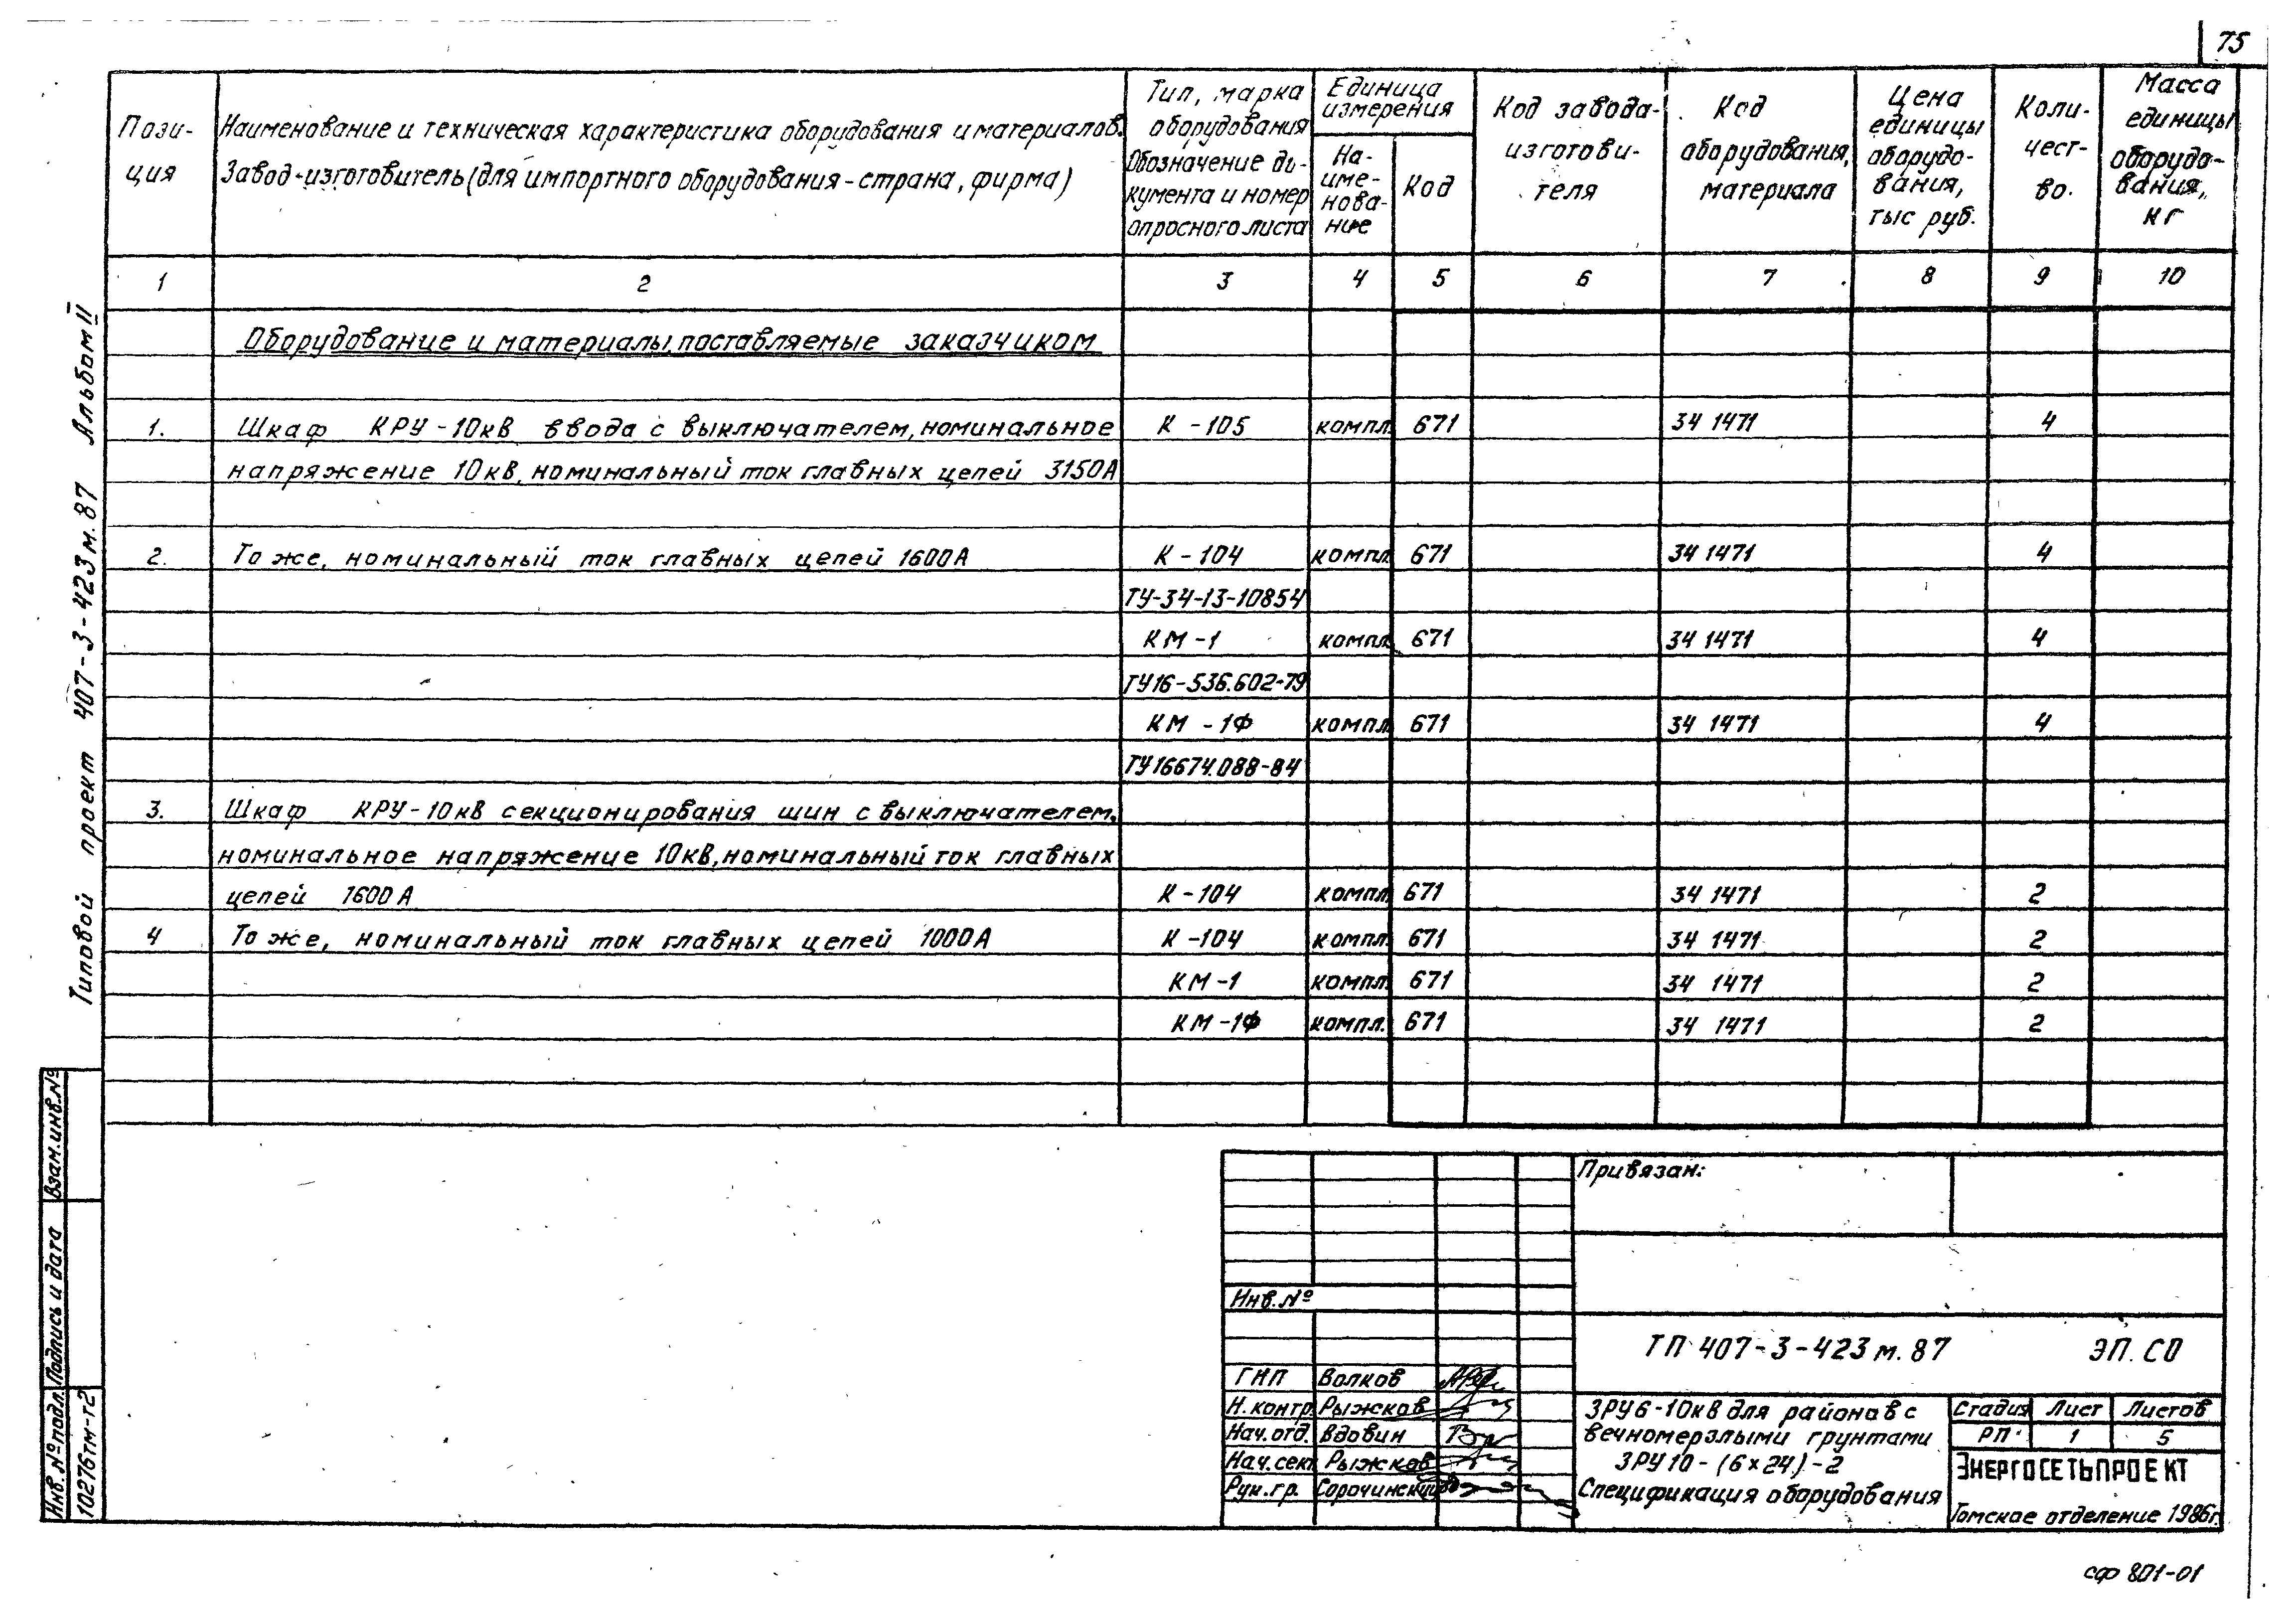 75
Пози-
ция
Наименование и техническая характеристика оборудования и материалов.
Завод-изготовитель (для импортного оборудования - страна, фирма)
Тип, марка
оборудования
Обозначение до-
кумента и номер
опросного листа
Единица
измерения
На-
име-
нова-
ние
Код
Код завода-
изготови-
теля
Код
оборудования,
материала
Цена
единицы
оборудо-
вания,
тыс руб.
Коли-
чест-
во.
Масса
единицы
оборудо-
вания,
кг
1 2 3 4 5 6 7 8 9 10
Оборудование и материалы, поставляемые заказчиком
1. Шкаф КРУ-10кВ ввода с выключателем, номинальное К-105 компл. 671 34 1471 4
напряжение 10кВ, номинальный ток главных цепей 3150А
2. То же, номинальный ток главных цепей 1600А К-104 компл. 671 34 1471 4
ТУ-34-13-10854
КМ-1 компл. 671 34 1471 4
ТУ16-536.602-79
КМ-1Ф компл. 671 34 1471 4
ТУ16674.088-84
3. Шкаф КРУ-10кВ секционирования шин с выключателем,
номинальное напряжение 10кВ, номинальный ток главных
цепей 1600А К-104 компл. 671 34 1471 2
4 То же, номинальный ток главных цепей 1000А К-104 компл. 671 34 1471 2
КМ-1 компл. 671 34 1471 2
КМ-1Ф компл. 671 34 1471 2
Типовой проект 407-3-423м.87 Альбом II
Взам.инв.№
Подпись и дата
Инв.№подл.
10276тм-т2
Привязан:
Инв.№
ТП 407-3-423м.87 ЭП.СО
ГИП Волков
Н.контр. Рыжков
Нач.отд. Вдовин
Нач.сек. Рыжков
Рук.гр. Сорочинский
ЗРУ6-10кВ для районов с
вечномерзлыми грунтами
ЗРУ10-(6х24)-2
Спецификация оборудования
Стадия Лист Листов
РП 1 5
ЭНЕРГОСЕТЬПРОЕКТ
Томское отделение 1986г.
сф 801-01